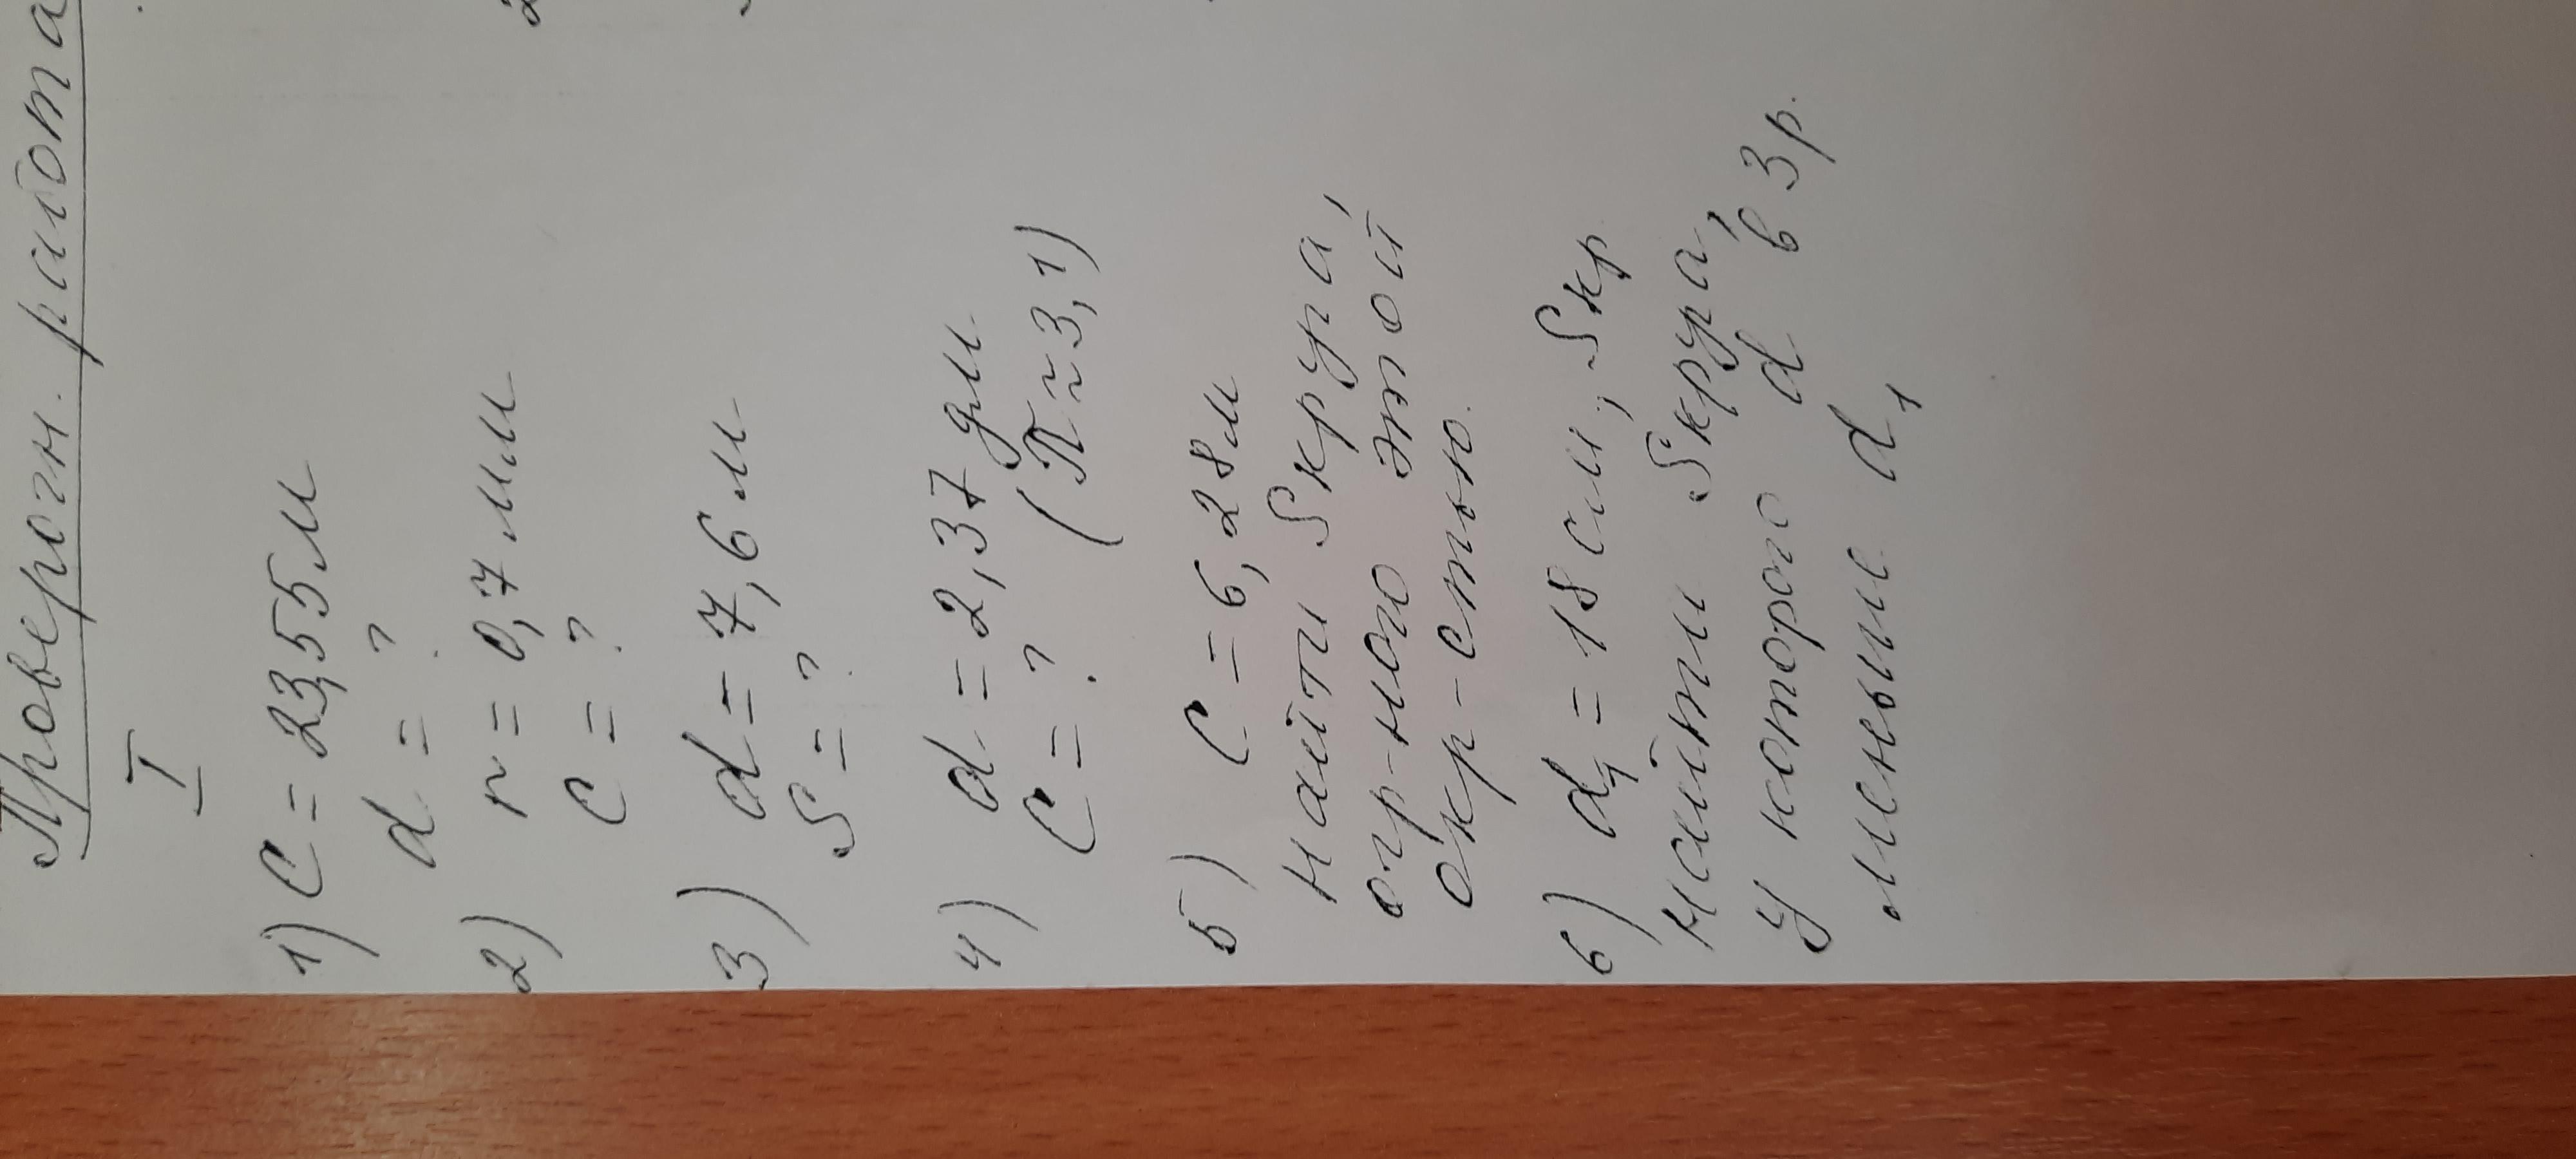 Проверочн. работа
I
1) C = 23,55 м
d = ?
2) r = 0,7 мм
C = ?
3) d = 7,6 м
S = ?
4) d = 2,37 дм
C = ? (π ≈ 3,1)
5) C = 6,28 м
найти S круга,
огр-ного этой
окр-стью.
6) d₁ = 18 см; S кр
найти S круга,
у которого d в 3 р.
меньше d₁